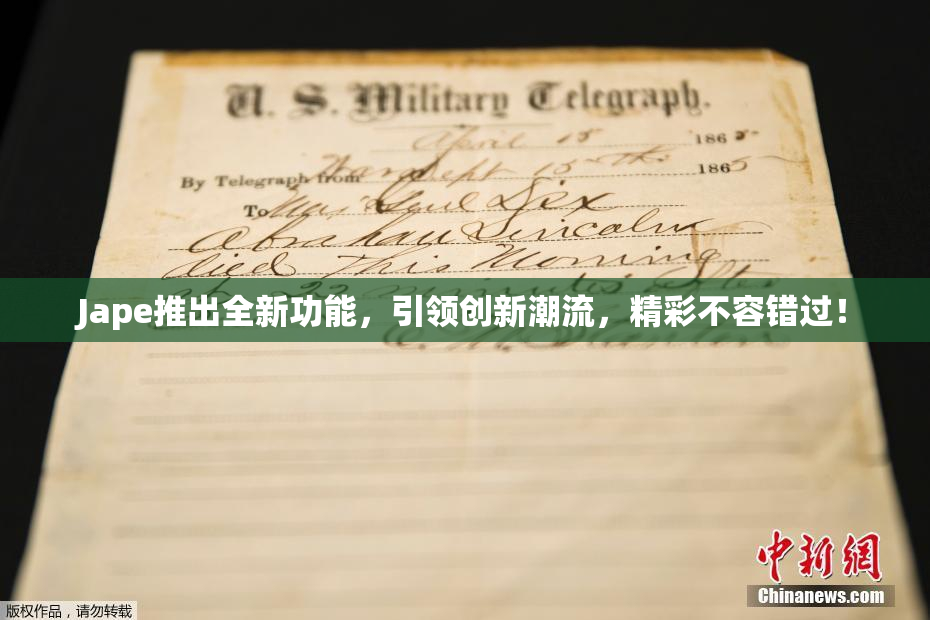 U. S. Military Telegraph.
April 15 1865
By Telegraph from War Dept 15th 1865
To Maj Genl Dix
Abraham Lincoln
died This Morning
at 22 minutes after
Jape推出全新功能，引领创新潮流，精彩不容错过！
E. M. Stanton
中新网
Chinanews.com
版权作品，请勿转载